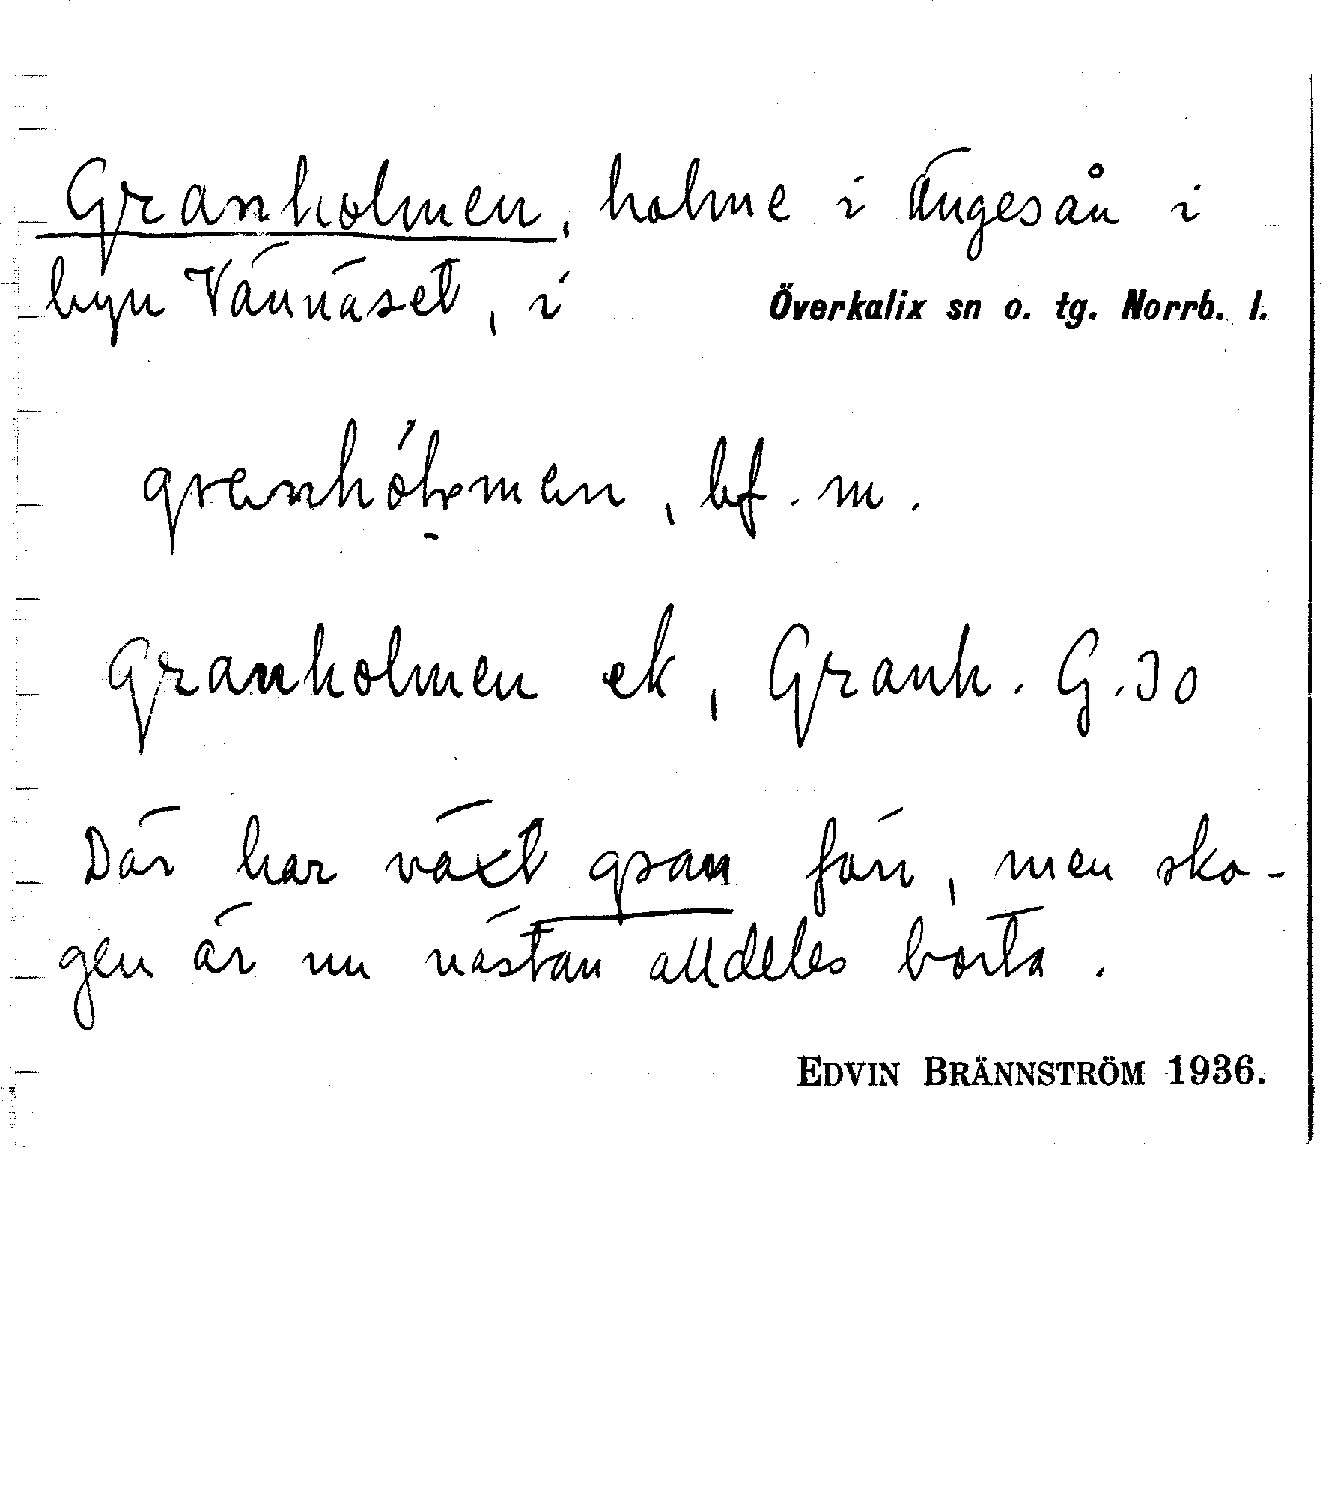 Granholmen, holme i Ängesån i
byn Vännäset, i Överkalix sn o. tg. Norrb. l.
, bf. m.
Granholmen ek, Granh. G. 30
Där har växt gran förr, men sko-
gen är nu nästan alldeles borta.
EDVIN BRÄNNSTRÖM 1936.